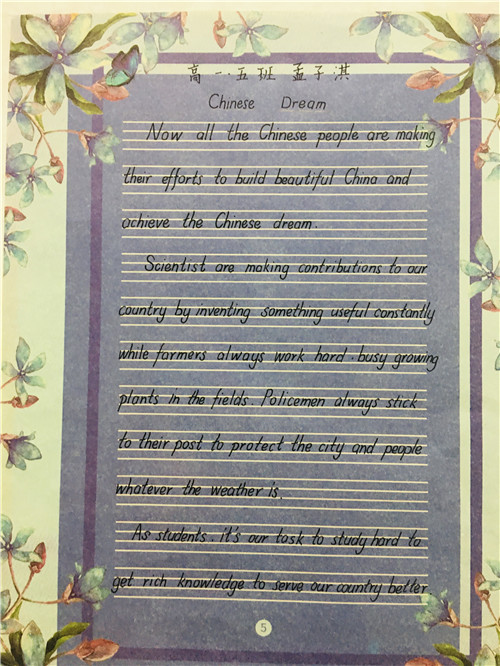 高一·五班 孟子淇
Chinese Dream
Now all the Chinese people are making
their efforts to build beautiful China and
achieve the Chinese dream.
Scientist are making contributions to our
country by inventing something useful constantly
while farmers always work hard. busy growing
plants in the fields. Policemen always stick
to their post to protect the city and people
whatever the weather is.
As students. it's our task to study hard to
get rich knowledge to serve our country better
5